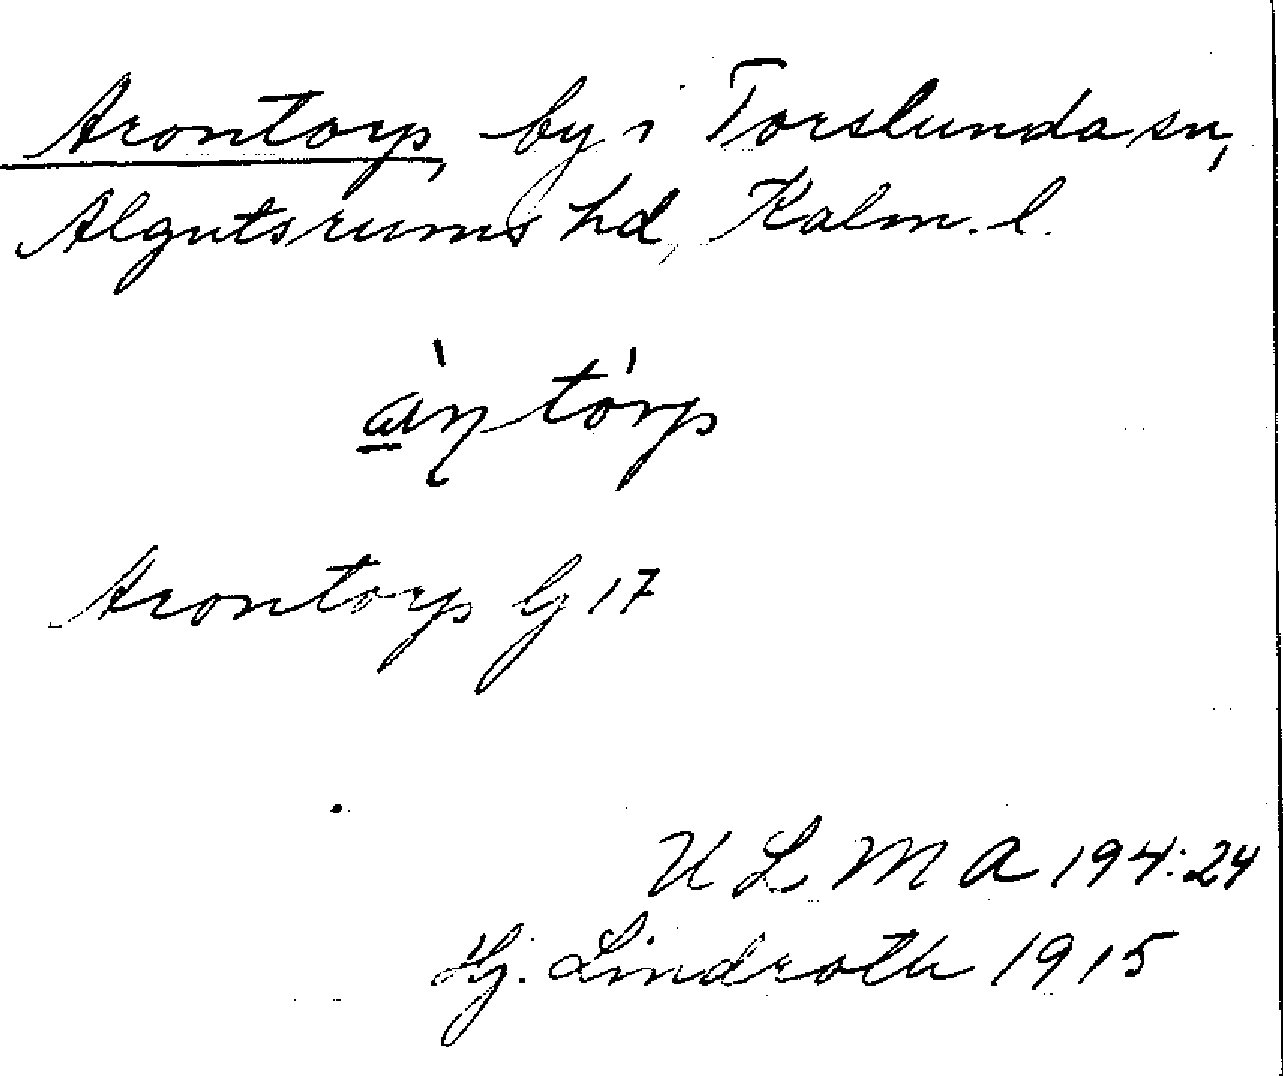 Arontorp, by i Torslunda sn,
Algutsrums hd, Kalm. l.
Arontorp G 17
ULMA 194:24
Hj. Lindroth 1915